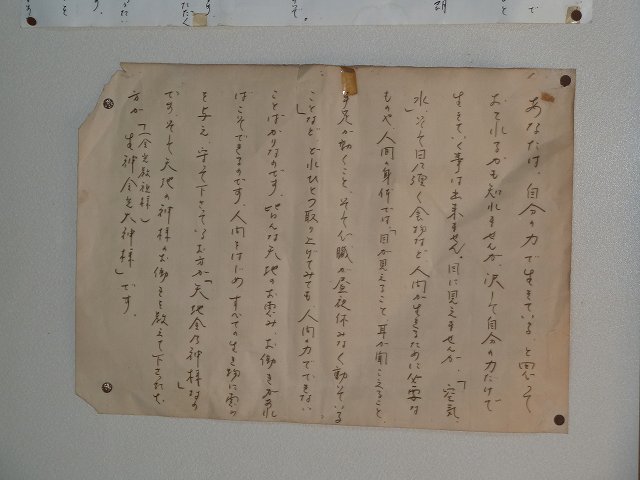 あなたは、自分の力で生きている、と思って
おられるかも知れませんが、決して自分の力だけで
生きていく事は出来ません。目に見えませんが、「空気、
水」そして日に頂く食物など、人間が生きるために必要な
ものや、人間の身体では、「目が見えること、耳が聞こえること、
手足が動くこと、そして心臓が昼夜休みなく動いている
ことなど」、どれひとつ取り上げてみても、人間の力でできない
ことばかりなのです。皆んな天地のお恵み、お働きがあれ
ばこそできるのです。人間をはじめ、すべての生き物に恵み
を与え、守って下さっているお方が「天地金乃神様」なの
です。そして天地の神様のお働きを教えて下さった
方が「(金光教祖様)
生神金光大神様」です。